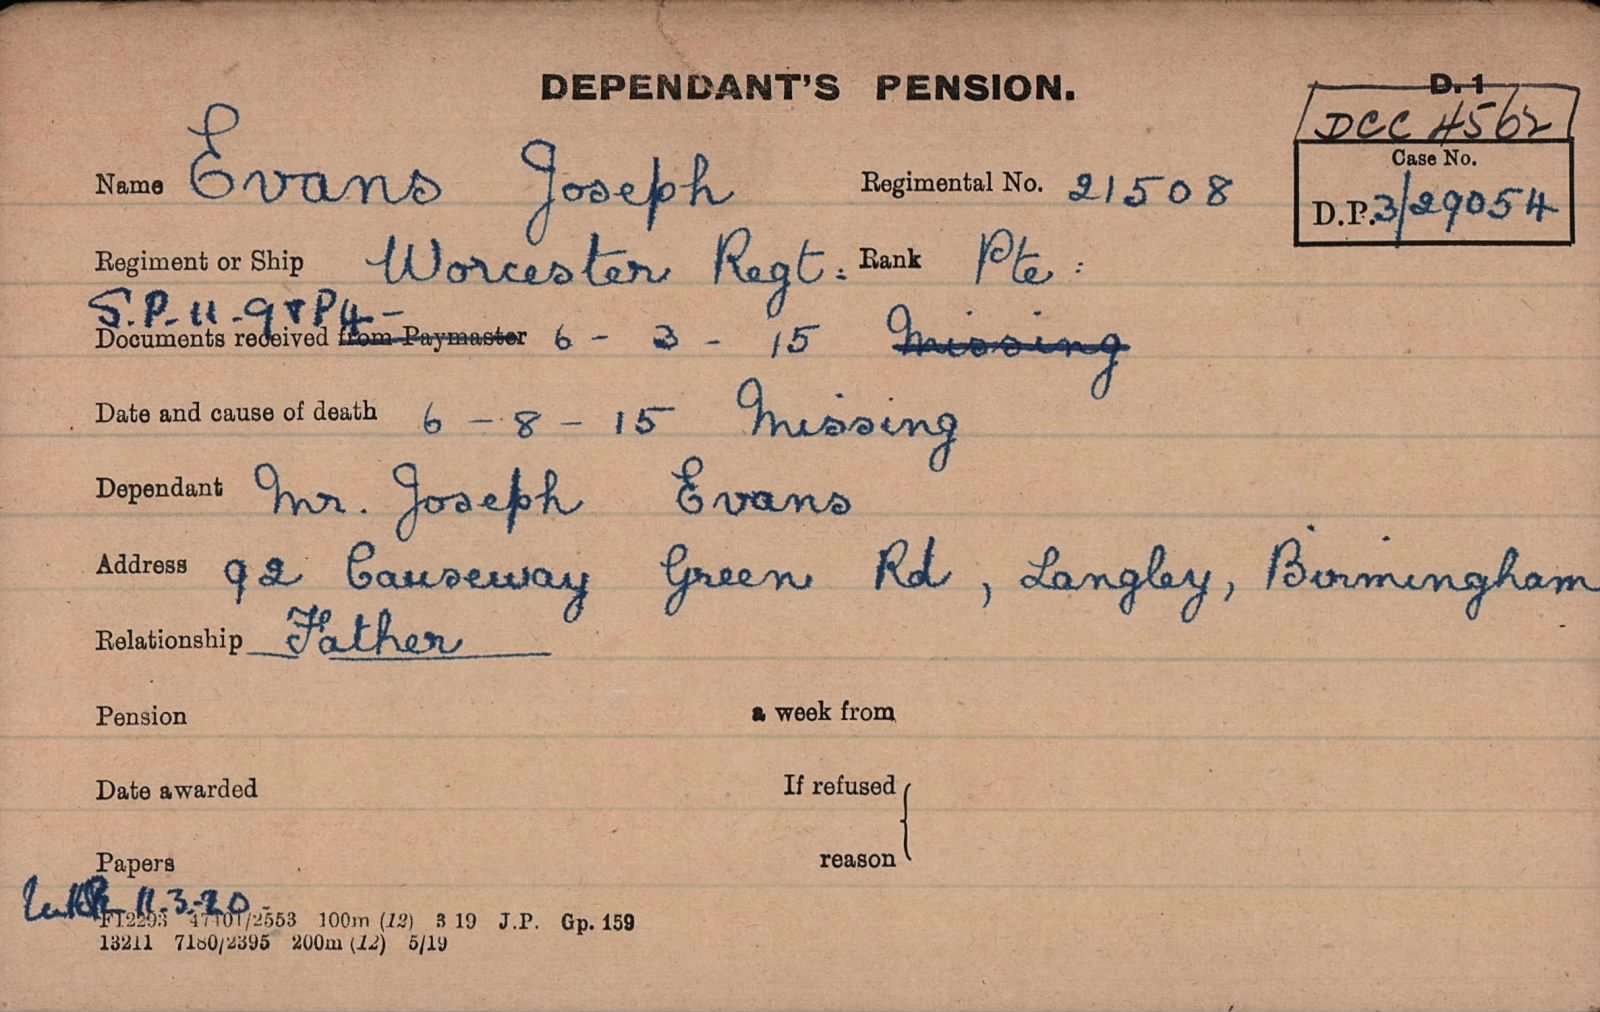 DEPENDANT'S PENSION.
D. 1
DCC 4562
Case No.
D.P. 3/29054
Name Evans Joseph Regimental No. 21508
Regiment or Ship Worcester Regt: Rank Pte:
S.P. 11 - 9 & P4 -
Documents received from Paymaster 6 - 3 - 15 Missing
Date and cause of death 6 - 8 - 15 Missing
Dependant Mr. Joseph Evans
Address 92 Causeway Green Rd, Langley, Birmingham
Relationship Father
Pension a week from
Date awarded If refused
Papers reason
11.3.20.
F12293 47101/2553 100m (12) 3 19 J.P. Gp. 159
13211 7180/2395 200m (12) 5/19